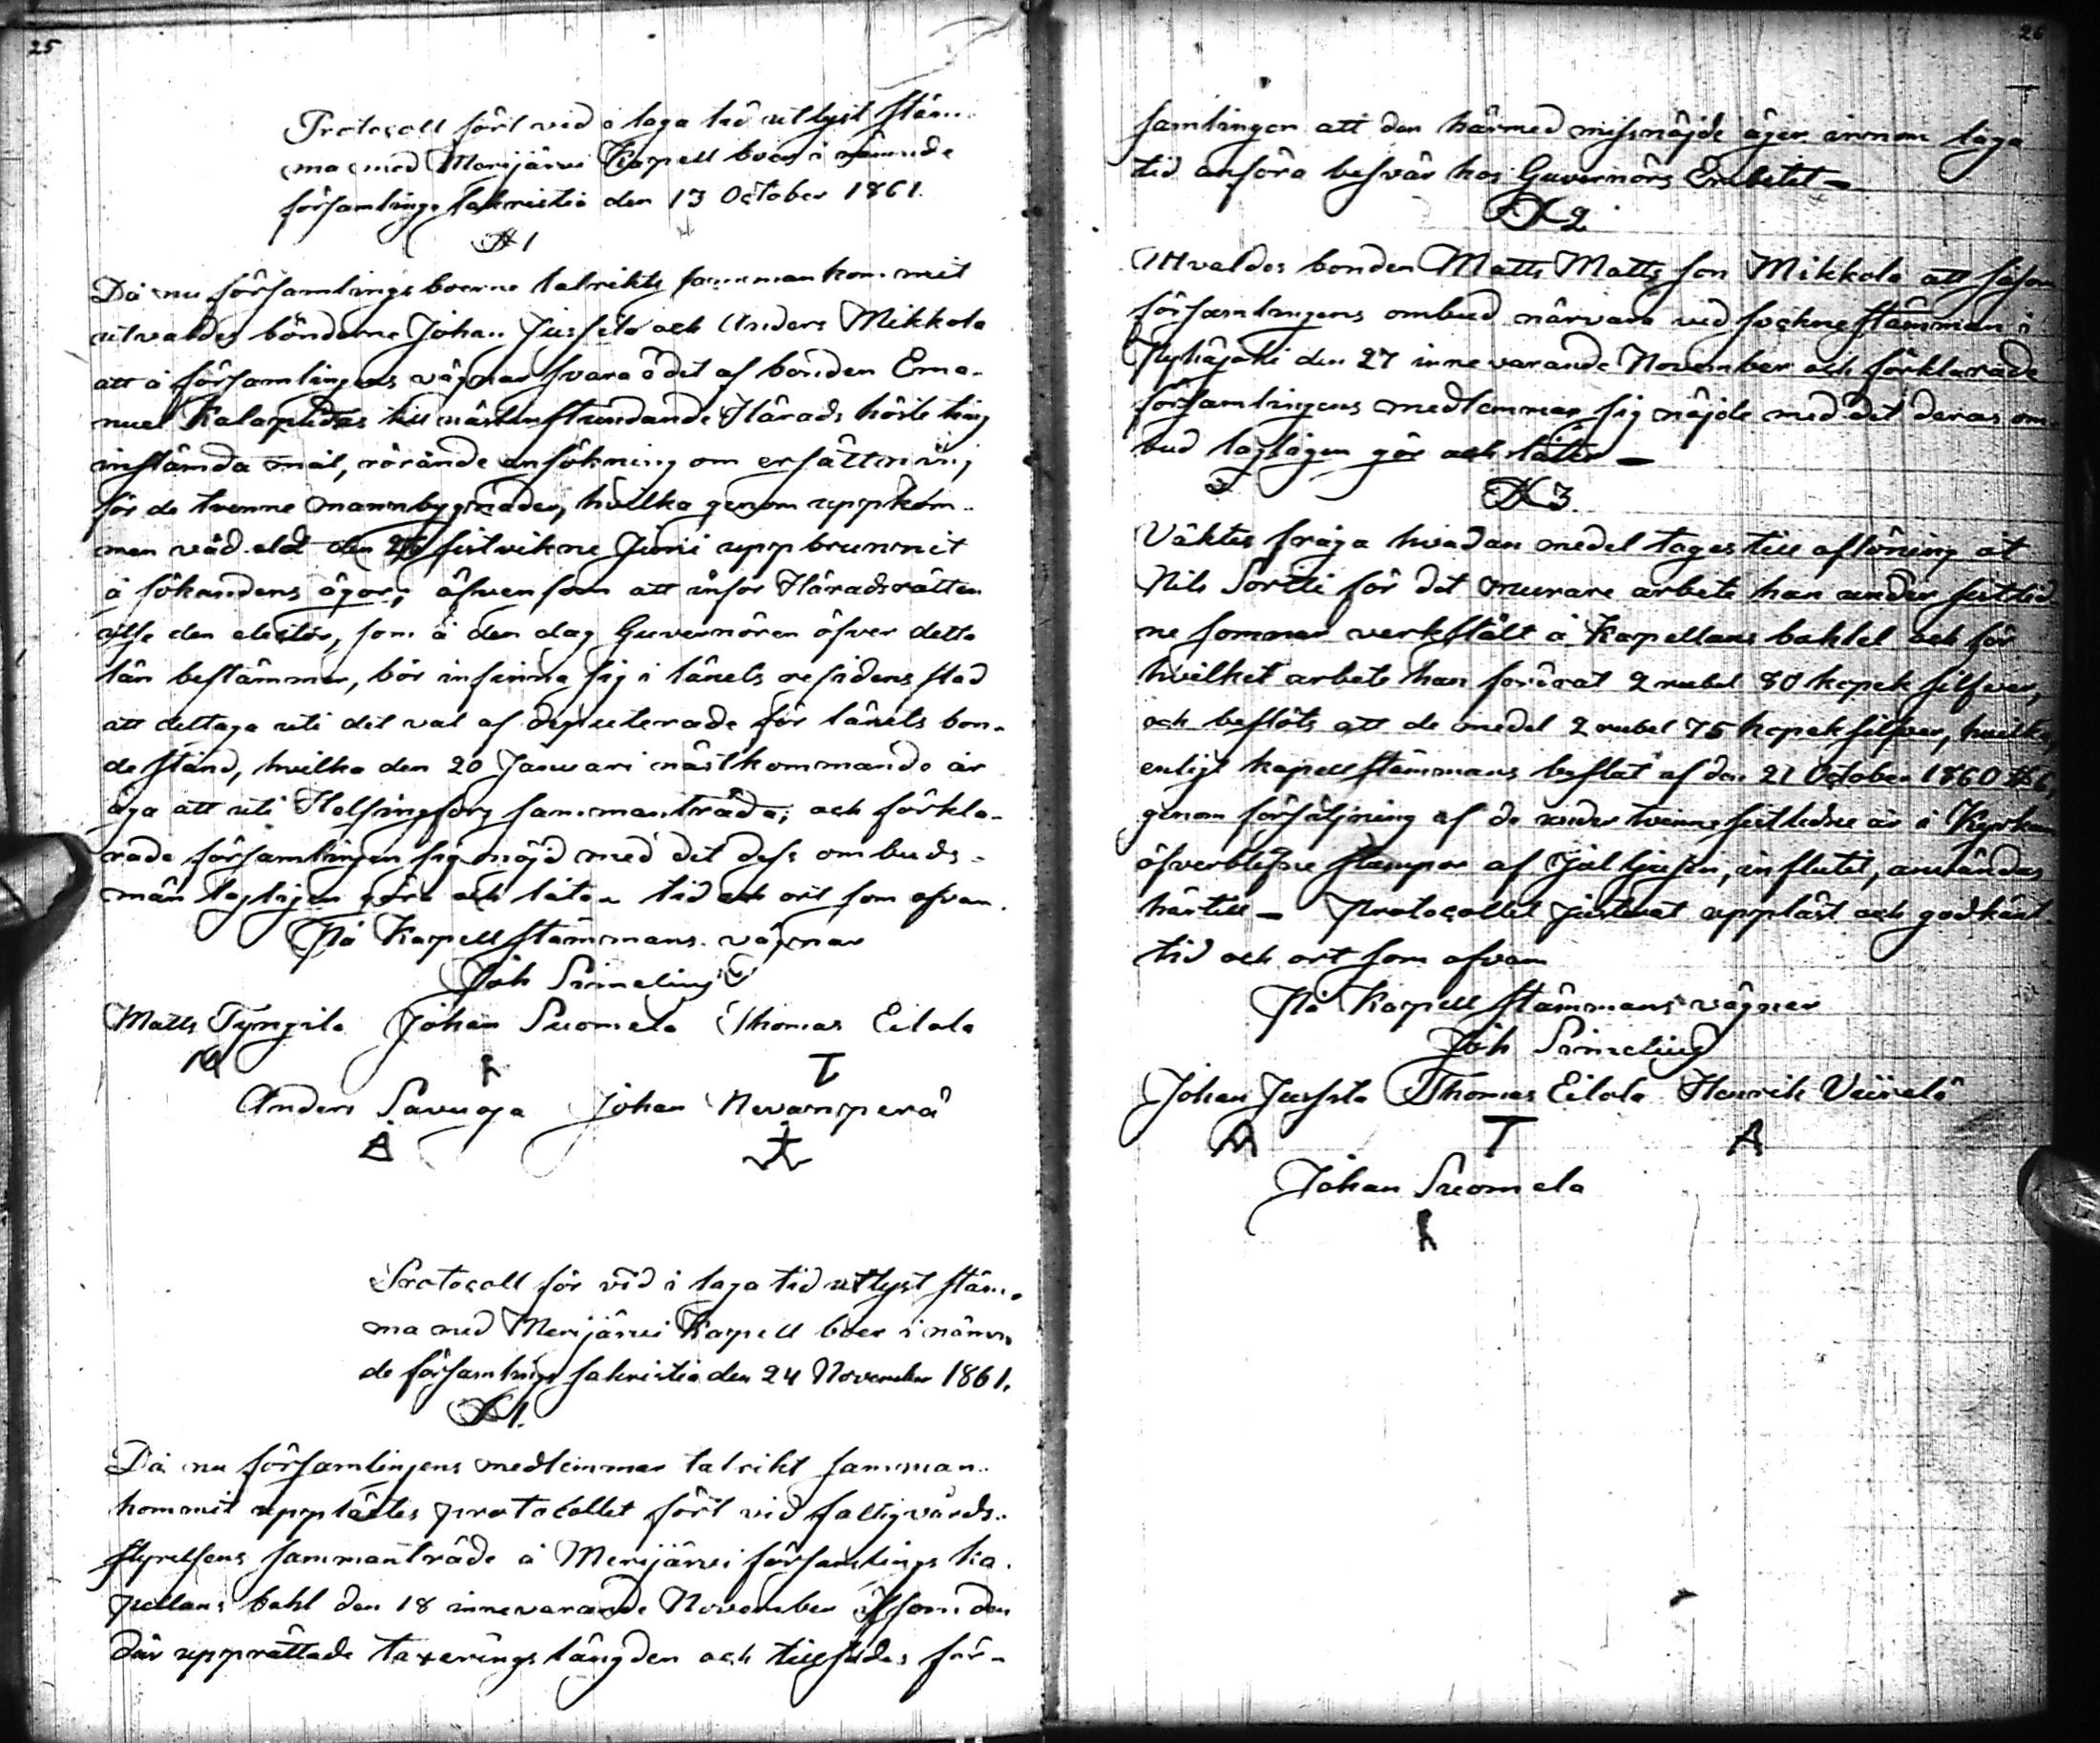 25
Protocoll fört vid i laga tid utlyst stäm-
ma med Merijärvi Kapell boer i nämnde
församlings sakristia den 13 October 1861.
§ 1
Då nu församlingsboerne talrikts sammankommit
utvaldes bönderne Johan Jussila och Anders Mikkola
att å församlingens vägnar svara å det af bonden Ema-
nuel till nästinstundande Härads höste ting
instämda mål, rörande ansökning om ersättning
för de tvenne mannbygnader, hvilka genom uppkom-
men våd eld den sistvikne Juni uppbrunnit
å sökandens ägor; äfvensom att inför Häradsrätten
utse den elector, som å den dag Guvernören öfver detta
län bestämmer, bör infinna sig i länets residens stad
att deltaga uti det val af deputerade för länets bon-
de stånd, hvilka den 20 Januari nästkommande år
äga att uti Helsingfors sammanträda; och förkla-
rade församlingen sig nöjd med det dess ombuds-
män lagligen göra och låta tid och ort som ofvan.
På Kapellstämmans vägnar
Joh Simelius
Matts Tyngilä Johan Suomela Thomas Eilola
T
Anders Savuoja Johan Nevanperä
A
Protocoll för vid i laga tid utlyst stäm-
ma med Merijärvi Kapell boer i nämn-
de församlings sakristia den 24 November 1861.
§ 1.
Då nu församlingens medlemmar talrikt samman-
kommit upplästes protocollet fört vid fattigvårds-
styrelsens sammanträde å Merijärvi församlings ka-
pellans bohl den 18 innevarande November som den
där upprättade taxerings längden och tillsades för-
26
samlingen att den härmed missnöjde äger innom laga
tid anföra besvär hos Guvernörs Embetet -
§ 2
Utvaldes bonden Matts Mattsson Mikkola att såsom
församlingens ombud närvara vid sockne stämman i
Pyhäjoki den 27 innevarande November och förklarade
församlingens medlemmar sig nöjde med det deras om-
bud lagligen gör och låter -
§ 3.
Väktes fråga hvadan medel tages till aflöning åt
Nils Sortti för det murare arbete han under sistlid-
ne sommar verkstält å Kapellans bohlet och för
hvilket arbete han fordrat 2 rubel 80 kopek silfver,
och beslöts att de medel 2 rubel 75 kopek silfver, hvilka,
enligt kapellstämmans beslut af den 21 October 1860 § 6,
genom försäljning af de under tvenne sistledne år i Kyrkan
öfverblefne stumpor af julljusen, influtit, användas
härtill - Protocollet justerat uppläst och godkänt
tid och ort som ofvan
På Kapell stämmans vägnar
Joh Simelius
Johan Jussila Thomas Eilola Henrik Viirelä
T A
Johan Suomela